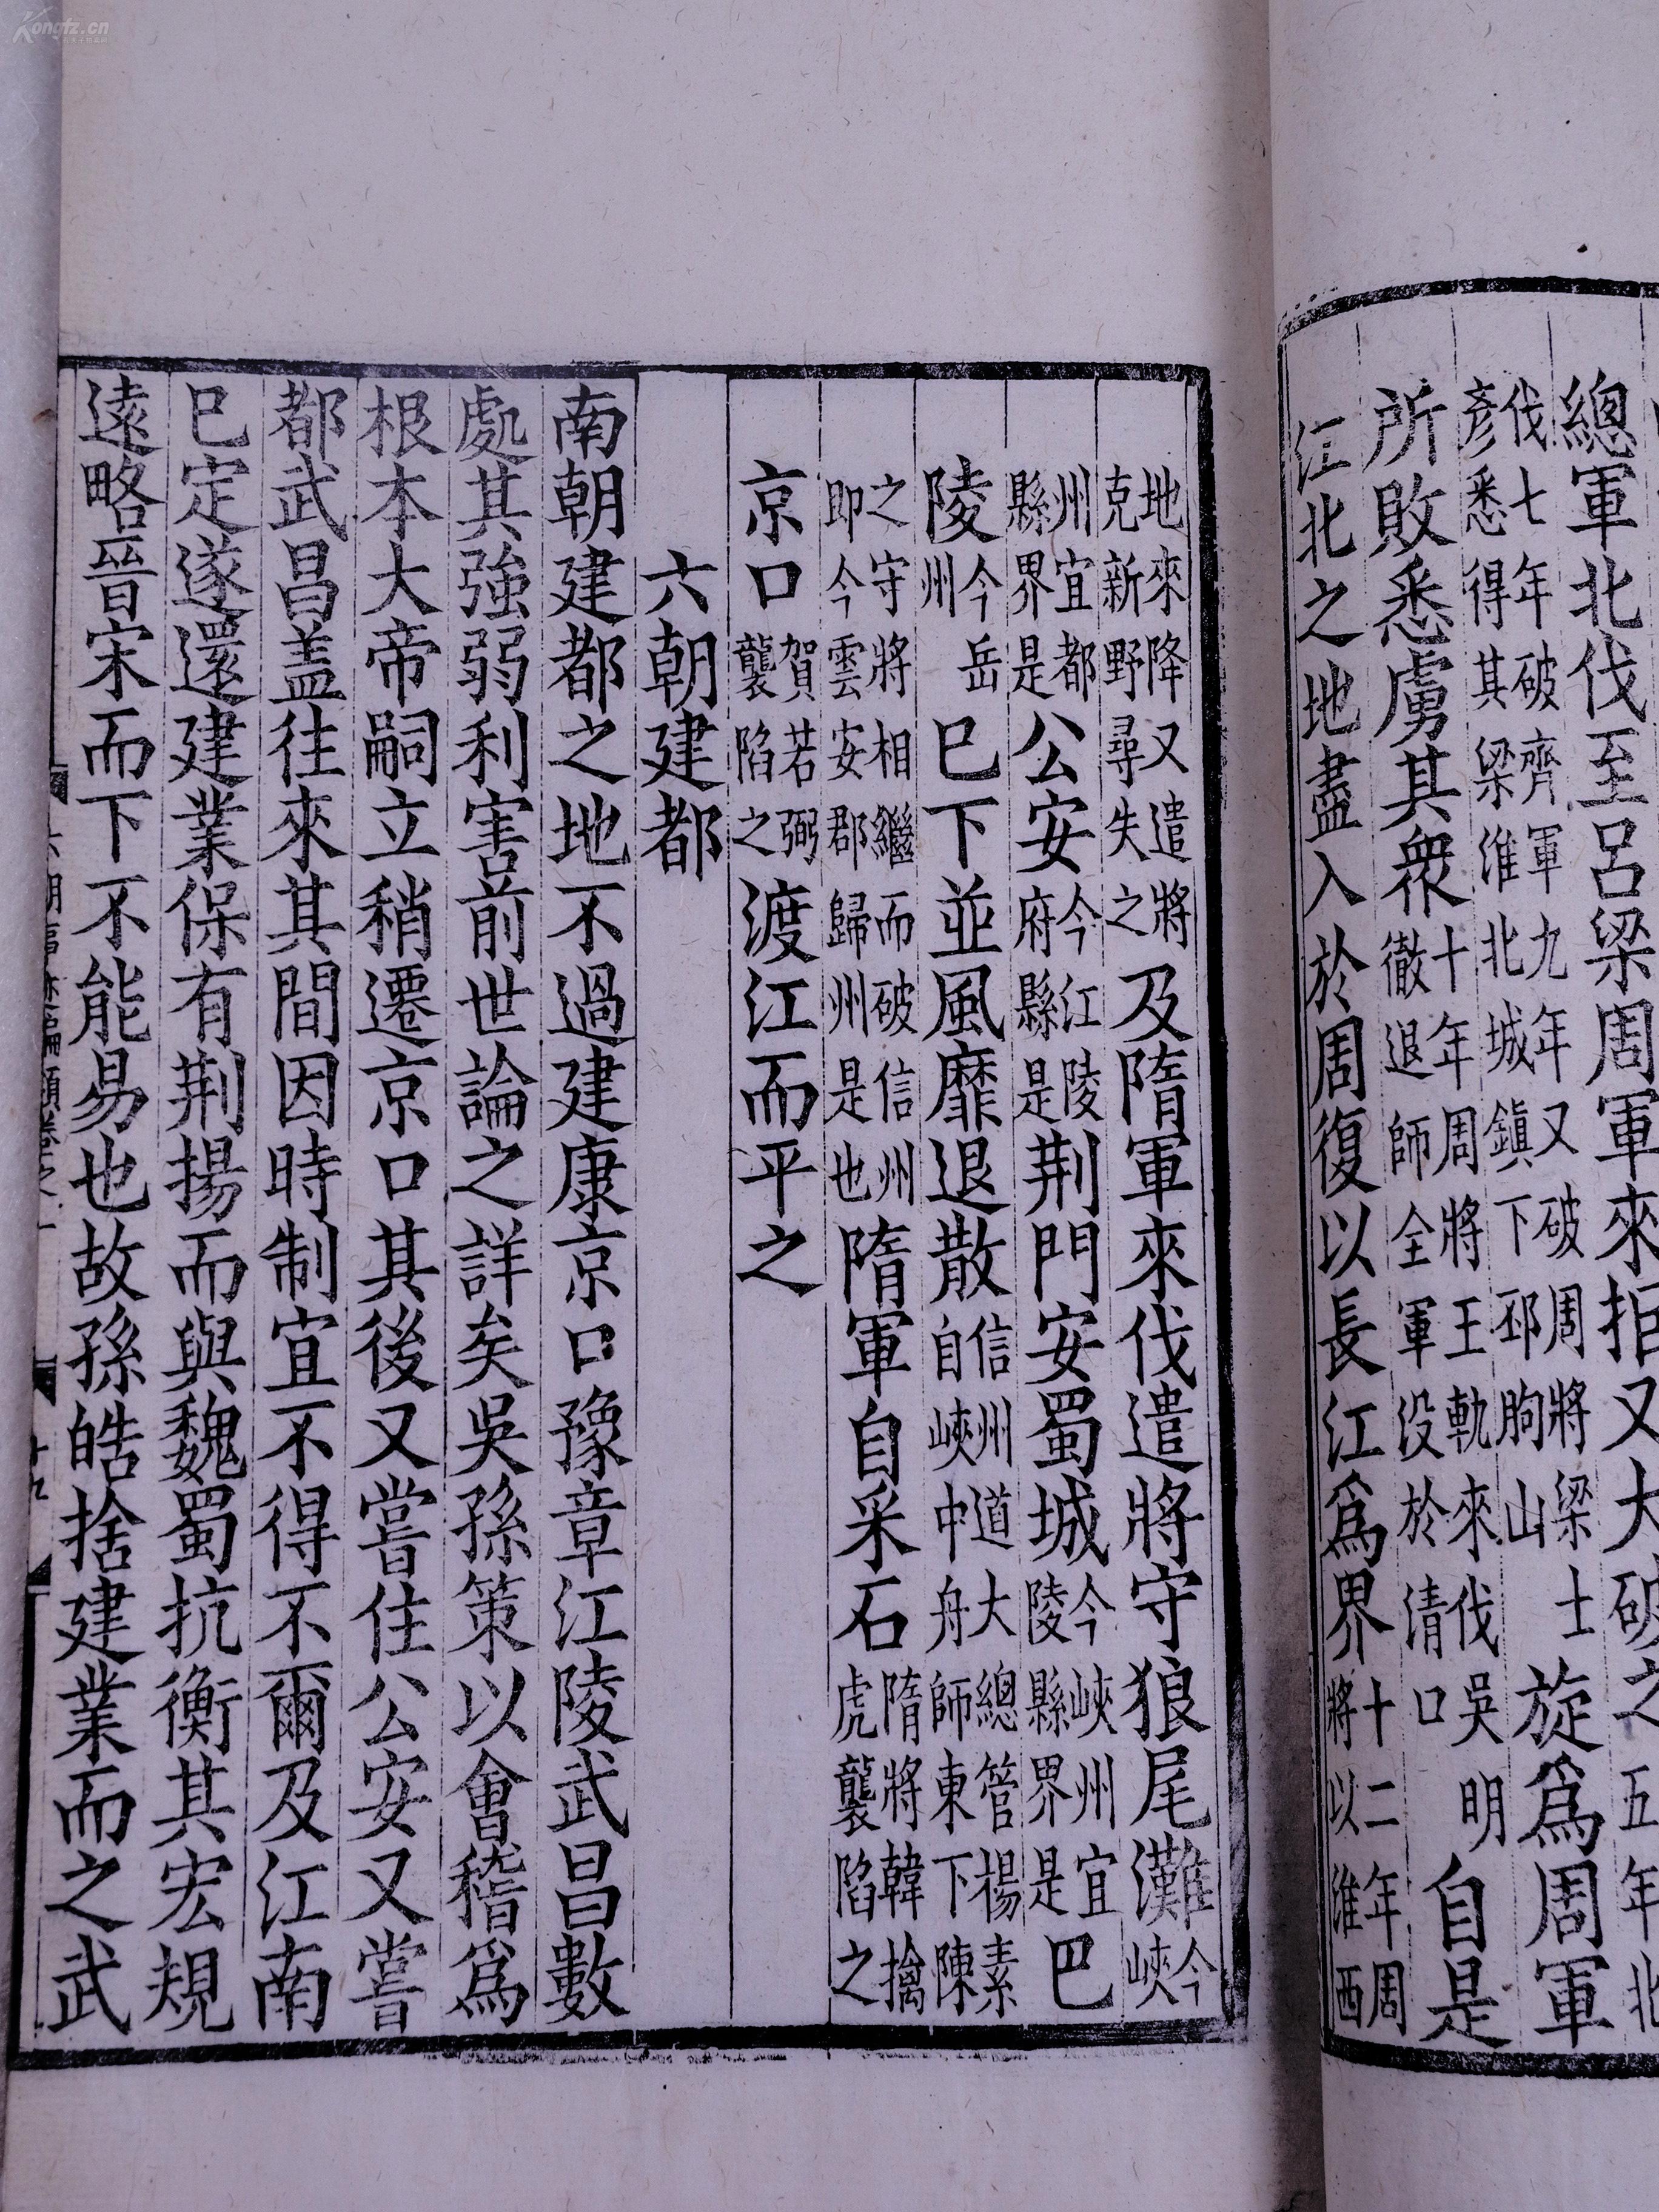 總軍北伐至呂梁周軍來拒又大破之五年北
伐七年破齊軍九年又破周將梁士
彥悉得其梁淮北城鎮下邳朐山旋爲周軍
所敗悉虜其衆十年周將王軌來伐吳明
徹退師全軍没於清口自是
江北之地盡入於周復以長江爲界十二年周
將以淮西
地來降又遣將
克新野尋失之及隋軍來伐遣將守狼尾灘今
峽
州宜都
縣界是公安今江陵
府縣是荆門安蜀城今峽州宜
陵縣界是巴
陵今岳
州巳下並風靡退散信州道大總管楊素
自峽中舟師東下陳
之守將相繼而破信州
即今雲安郡歸州是也隋軍自采石隋將韓擒
虎襲陷之
京口賀若弼
襲陷之渡江而平之
六朝建都
南朝建都之地不過建康京口豫章江陵武昌數
處其強弱利害前世論之詳矣吳孫策以會稽爲
根本大帝嗣立稍遷京口其後又嘗住公安又嘗
都武昌盖往來其間因時制宜不得不爾及江南
巳定遂還建業保有荆揚而與魏蜀抗衡其宏規
逺略晉宋而下不能易也故孫皓捨建業而之武
Kongfz.cn